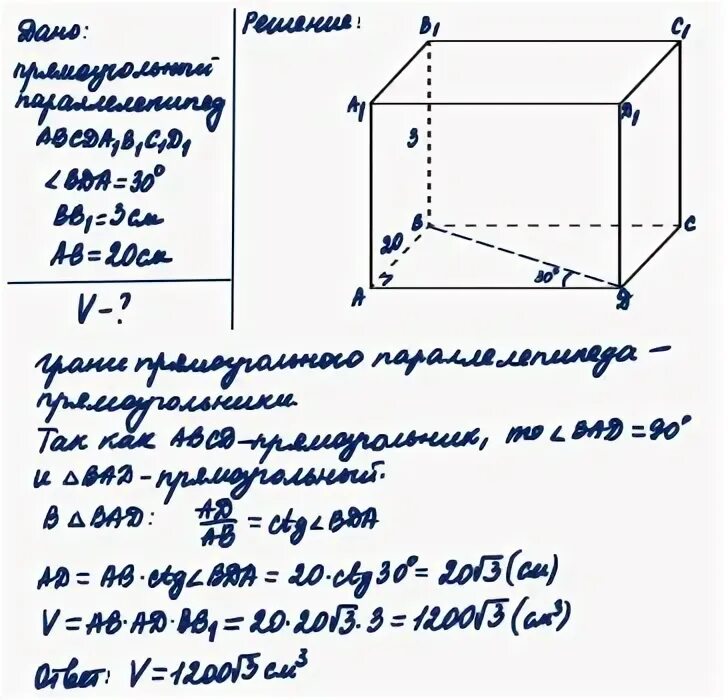 Дано:
прямоугольный
параллелепипед
ABCDA₁B₁C₁D₁
∠BDA=30°
BB₁=3см
AB=20см
V-?
Решение:
B₁
C₁
A₁
D₁
3
B
C
20
30°
A
D
Грани прямоугольного параллелепипеда –
прямоугольники.
Так как ABCD-прямоугольник, то ∠BAD=90°
и △BAD-прямоугольный.
В △BAD: AD/AB = ctg∠BDA
AD = AB·ctg∠BDA = 20·ctg30° = 20√3 (см)
V = AB·AD·BB₁ = 20·20√3·3 = 1200√3 (см³)
Ответ: V=1200√3 см³